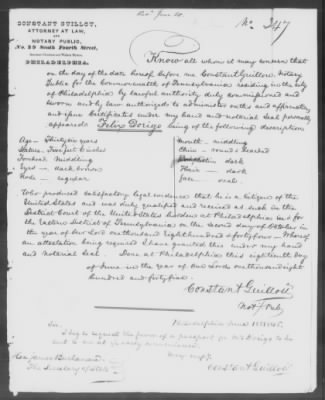 Recd June 20.
No 247
CONSTANT GUILLOU,
ATTORNEY AT LAW,
AND
NOTARY PUBLIC,
No. 39 South Fourth Street,
PHILADELPHIA.
Know all whom it may concern that
on the day of the date hereof before me Constant Guillou, Notary
Public for the Commonwealth of Pennsylvania residing in the city
of Philadelphia by lawful authority duly commissioned and
sworn and by law authorized to administer oaths and affirmations
and issue Certificates under my hand and notarial Seal personally
appeared being of the following description
Age - Thirty six years
Stature - Five feet 6 inches
Forehead middling
Eyes - dark brown
Nose - regular
Mouth - middling
Chin - round & bearded
Complexion - dark
Hair - dark
Face - oval.
Who produced satisfactory legal evidence that he is a Citizen of the
United States and was duly qualified and received as such in the
District Court of the United States holden at Philadelphia in & for
the Eastern District of Pennsylvania on the second day of October in
the year of our Lord one thousand eight hundred & forty four - Whereof
an attestation being required I have granted this under my hand
and notarial seal. Done at Philadelphia this eighteenth day
of June in the year of our Lord one thousand eight
hundred and forty five.
Constant Guillou
Not. Pub.
Philadelphia June 18 1845
Sir
I beg to request the favor of a passport for Mr to be
sent to me at
Very respy.
Constant Guillou
Hon James Buchanan
The Secretary of State